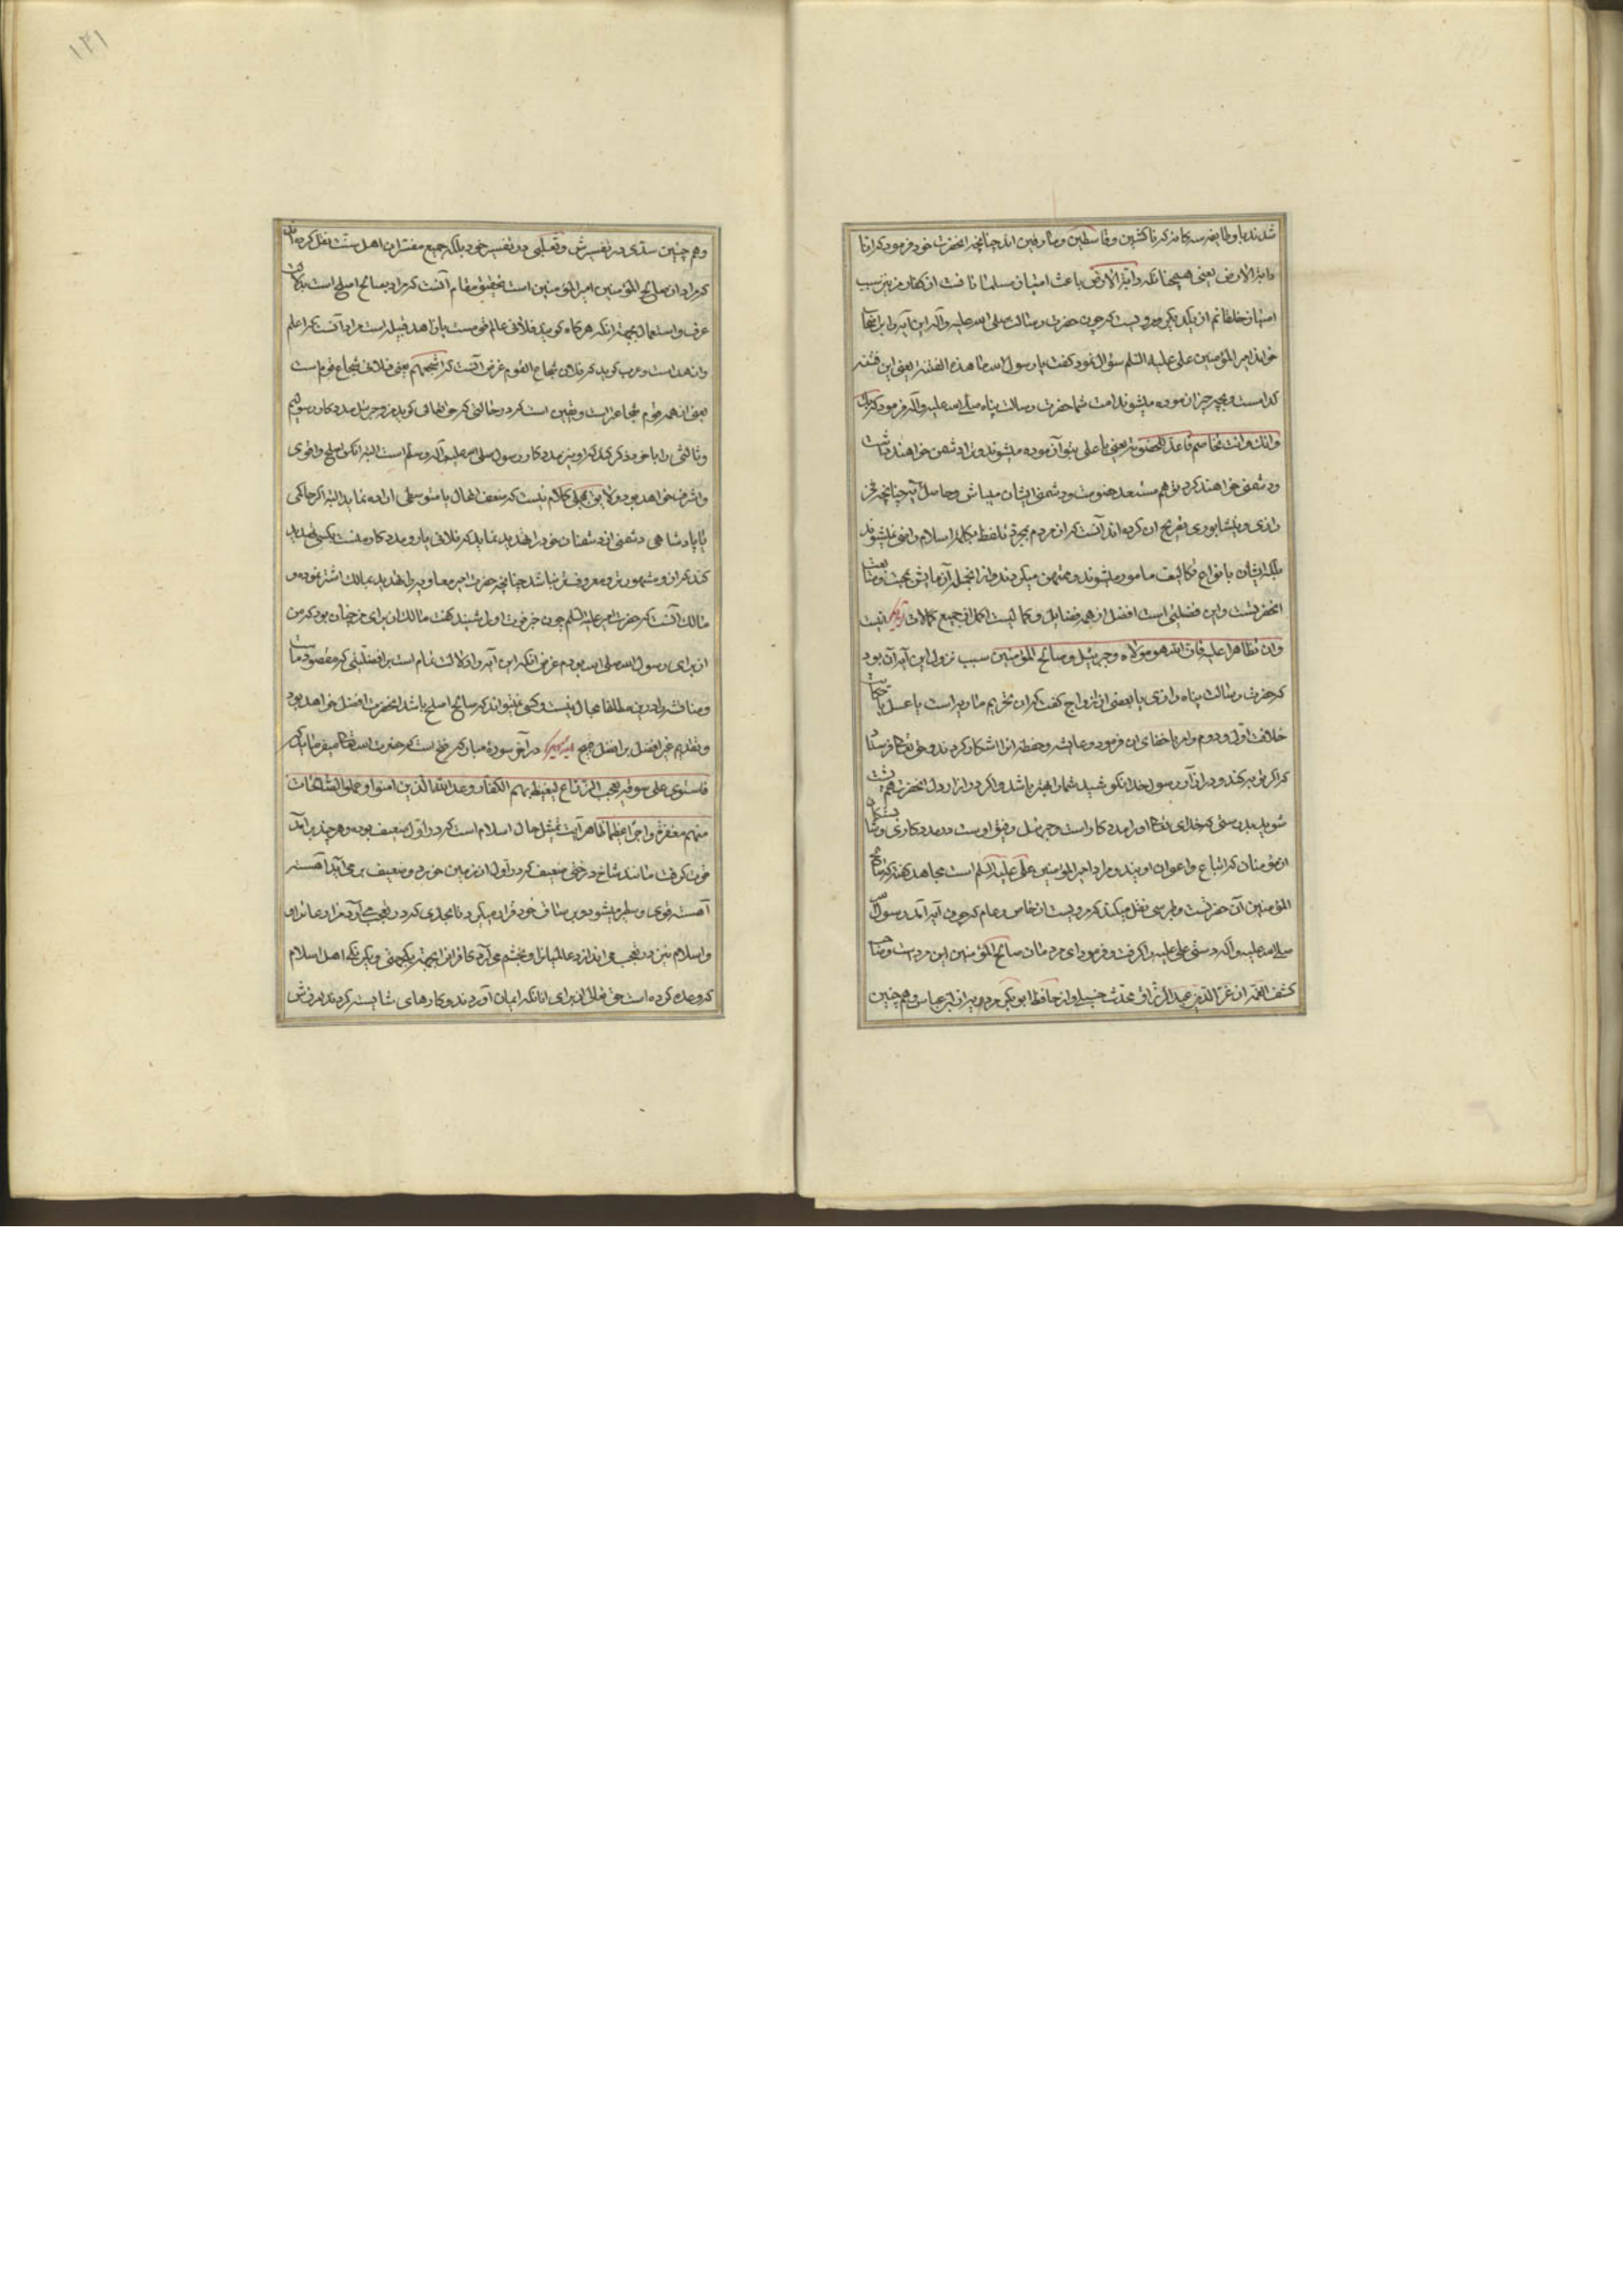 شدند با وطایفه سه کانه که ناکثین وقاسطین ومارقین اند چنانچه انحضرت خود فرمود که انا
دابة الارض یعنی همچنانکه دابة الارض باعث امتیاز مسلمانانست از کفار من نیز سبب
امتیاز خلقانم از یکدیگر مرویست که چون حضرت رسالت صلی الله علیه واله این آیه را بر انجا
خواند امیر المؤمنین علی علیه السلم سؤال نمود کفت یا رسول الله ما هذه الفتنة یعنی این فتنه
کدامست وبچه چیز ازموده میشوند امت شما حضرت رسالت پناه صلی الله علیه واله فرمود که بک
وانک وانت مخاصم فاعد للخصومة یعنی یا علی بتو آزموده میشوند وترا دشمن خواهند داشت
ودشمنی خواهند کرد تو هم مستعد خصومت ودشمنی ایشان میباش وحاصل آیه چنانچه فخر
رازی ونیشابوری تصریح ان کرده اند آنست که از مردم بمجرد تلفظ بکلمه اسلام راضی نمیشوند
بلکه ایشان بانواع تکالیف مامور میشوند وممتحن میکردند واز انجمله آزمایش بمحبت ومتابعت
انحضرتست واین فضلیتی است افضل از همه فضایل وکمالیست اکمل از جمیع کمالات آیه دیگر اینست
وان تظاهرا علیه فان الله هو مولاه وجبریئل وصالح المؤمنین سبب نزول این آیه آن بود
که حضرت رسالت پناه رازی با بعضی از ازواج کفت که ان تحریم ماریه است یا عسل یا حکایت
خلافت اول ودوم وامر باخفای ان فرمود وعایشه وحفصه انرا اشکار کردند وحق تعالی فرستاد
که اکر توبه کنند ودر ازآر رسول خدا نکوشید شما را بهتر باشد واکر در ازار دل انحضرت هم پشت
شوید بدرستی که خدای تعالی او را مددکار است وجبرئیل رفیق اوست در مددکاری وشایستکان
از مؤمنان که اتباع واعوان اویند ومراد امیر المؤمنین علی علیه السلم است مجاهد کفته که صالح
المؤمنین آن حضرتست وطبرسی نقل میکند که مرویست از خاص وعام که چون آیه آمد رسول
صلی الله علیه واله دست علی علیه را کرفت وفرمود ای مردمان صالح المؤمنین این مرد است وصاحب
کشف الغمه از عز الدین عبد الرزاق محدث حنبلی واز حافظ ابو بکر مردویه از ابن عباس وهم چنین
۱۳۱
وهم چنین سدی در تفسیرش وثعلبی در تفسیر خود بلکه جمیع مفسران اهل سنت نقل کرده اند
که مراد از صالح المؤمنین امیر المؤمنین است تحقیق مقام آنست که مراد بصالح اصلح است بدلالت
عرف واستعمال بجهة انکه هر کاه کویند فلانی عالم قومست یا زاهد قبیله است مراد آنست که اعلم
وازهد است وعرب کوید که فلان شجاع القوم غرض آنست که اشجعهم یعنی فلان شجاع قوم است
یعنی از همه قوم شجاعتر است ویقین است که در حالتی که حق تعالی کوید من وجبرئیل مددکار رسولیم
وثالثی را با خود ذکر کند که او نیز مددکار رسول صلی الله علیه وآله وسلم است البته آنکس اصلح واقوی
واشرف خواهد بود ولایق بمجلی کلام نیست که ضعیف الحال یا متوسطی اراده نماید البته اکر حاکمی
یا پادشاهی دشمنی از دشمنان خود را تهدید نماید که فلانی یار ومددکار منست بکسی تهدید
کند که از او مشهورتر ومعروفتر نباشد چنانچه حضرت امیر معاویه را تهدید بمالک اشتر نموده و
مالک آنست که حضرت امیر علیه السلم چون خبر فوت او را شنید کفت مالک از برای من چنان بود که من
از برای رسول الله صلی الله بودم غرض انکه این آیه را دلالت تمام است بر افضلیتی که مقصود ماست
ومناقشه را درین مطلقا مجال نیست وکسی نمیتواند که صالح اصلح باشد انحضرت افضل خواهد بود
وتقدیم غیر افضل بر افضل قبیح آیه دیگر در آخر سوره مبارکه فتح است که حضرت الله تعالی میفرماید که
فاستوی علی سوقه یعجب الزراع لیغیظ بهم الکفار وعد الله الذین امنوا وعملوا الصالحات
منهم مغفرة واجرا عظیما ظاهر آیت تمثیل حال اسلام است که در اول ضعیف بوده وهر چند بر آمد
قوت کرفت مانند شاخ درختی ضعیف که در اول از زمین خورد وضعیف بر می آید آهسته
آهسته قوی وسطبر میشود وبر ساق خود قرار میکیرد تا بحدی که در تعجب می آرد مزارعانرا و
واسلام نیز در تعجب می اندازد عالمیانرا وبخشم می آرد کافرانرا بجهة یکجهتی ویکرنکی اهل اسلام
که وعده کرده است حق تعالی از برای انانکه ایمان آوردند وکارهای شایسته کردند امرزش